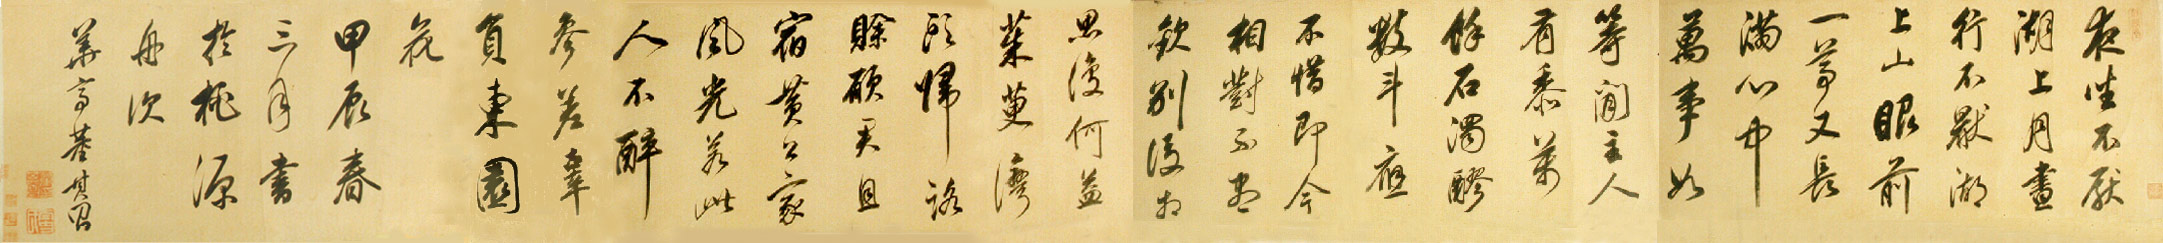 夜坐不厭
湖上月晝
行不厭湖
上山眼前
一尊又長
滿心中
萬事如
等閒主人
有黍萬
餘石濁醪
數斗應
不惜即今
相對不盡
歡別後相
思復何益
茱萸灣
頭歸路
賒願君且
宿黃公家
風光若此
人不醉
參差辜
負東園
花
甲辰春
三月書
於桃源
舟次
華亭董其昌